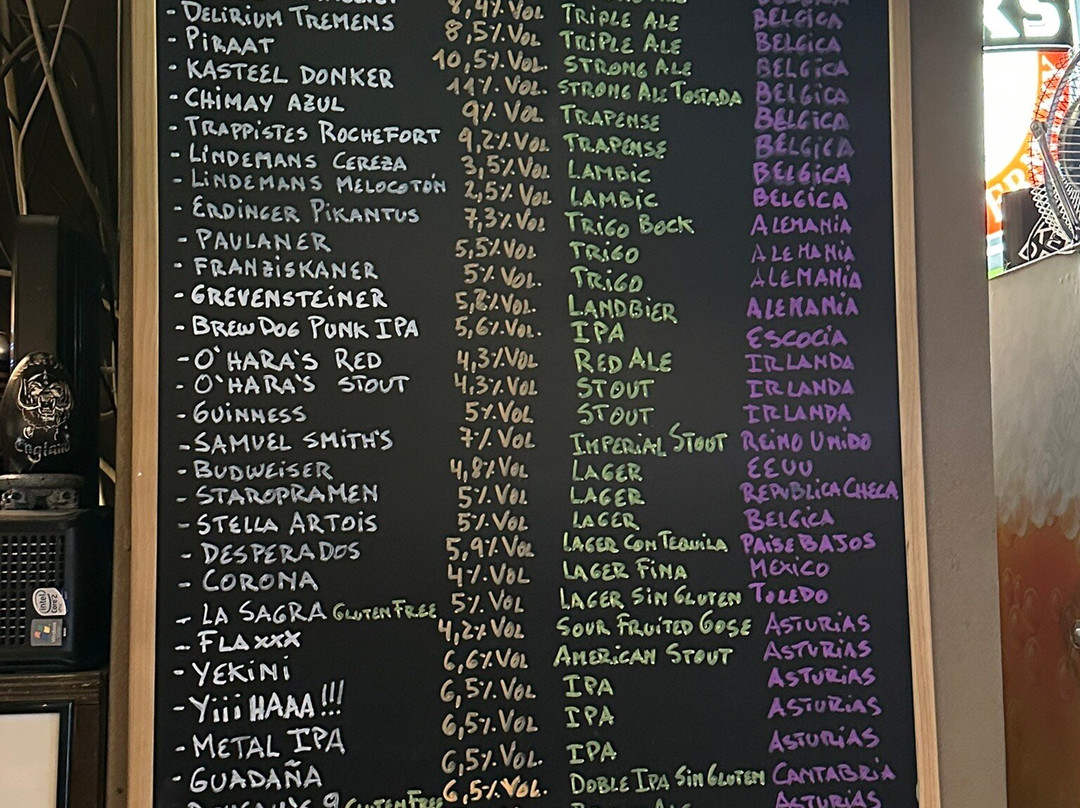 8,4% VOL TRIPLE ALE BELGICA
- DELIRIUM TREMENS 8,5% VOL TRIPLE ALE BELGICA
- PIRAAT 10,5% VOL. STRONG ALE BELGICA
- KASTEEL DONKER 11% VOL. STRONG ALE TOSTADA BELGICA
- CHIMAY AZUL 9% VOL TRAPENSE BELGICA
- TRAPPISTES ROCHEFORT 9,2% VOL TRAPENSE BELGICA
- LINDEMANS CEREZA 3,5% VOL LAMBIC BELGICA
- LINDEMANS MELOCOTÓN 2,5% VOL LAMBIC BELGICA
- ERDINGER PIKANTUS 7,3% VOL TRIGO BOCK ALEMANIA
- PAULANER 5,5% VOL TRIGO ALEMANIA
- FRANZISKANER 5% VOL. TRIGO ALEMANIA
- GREVENSTEINER 5,2% VOL. LANDBIER ALEMANIA
- BREWDOG PUNK IPA 5,6% VOL. IPA ESCOCIA
- O'HARA'S RED 4,3% VOL RED ALE IRLANDA
- O'HARA'S STOUT 4,3% VOL STOUT IRLANDA
- GUINNESS 5% VOL STOUT IRLANDA
- SAMUEL SMITH'S 7% VOL IMPERIAL STOUT REINO UNIDO
- BUDWEISER 4,8% VOL LAGER EEUU
- STAROPRAMEN 5% VOL LAGER REPUBLICA CHECA
- STELLA ARTOIS 5% VOL LAGER BELGICA
- DESPERADOS 5,9% VOL LAGER CON TEQUILA PAISE BAJOS
- CORONA 4% VOL LAGER FINA MEXICO
- LA SAGRA GLUTEN FREE 5% VOL LAGER SIN GLUTEN TOLEDO
- FLAXXX 4,2% VOL SOUR FRUITED GOSE ASTURIAS
- YEKINI 6,6% VOL AMERICAN STOUT ASTURIAS
- YiiiHAAA!!! 6,5% VOL IPA ASTURIAS
- METAL IPA 6,5% VOL IPA ASTURIAS
- GUADAÑA 6,5% VOL. IPA ASTURIAS
9 GLUTEN FREE 6,5% VOL. DOBLE IPA SIN GLUTEN CANTABRIA
ASTURIAS
England
intel
Core 2
KS